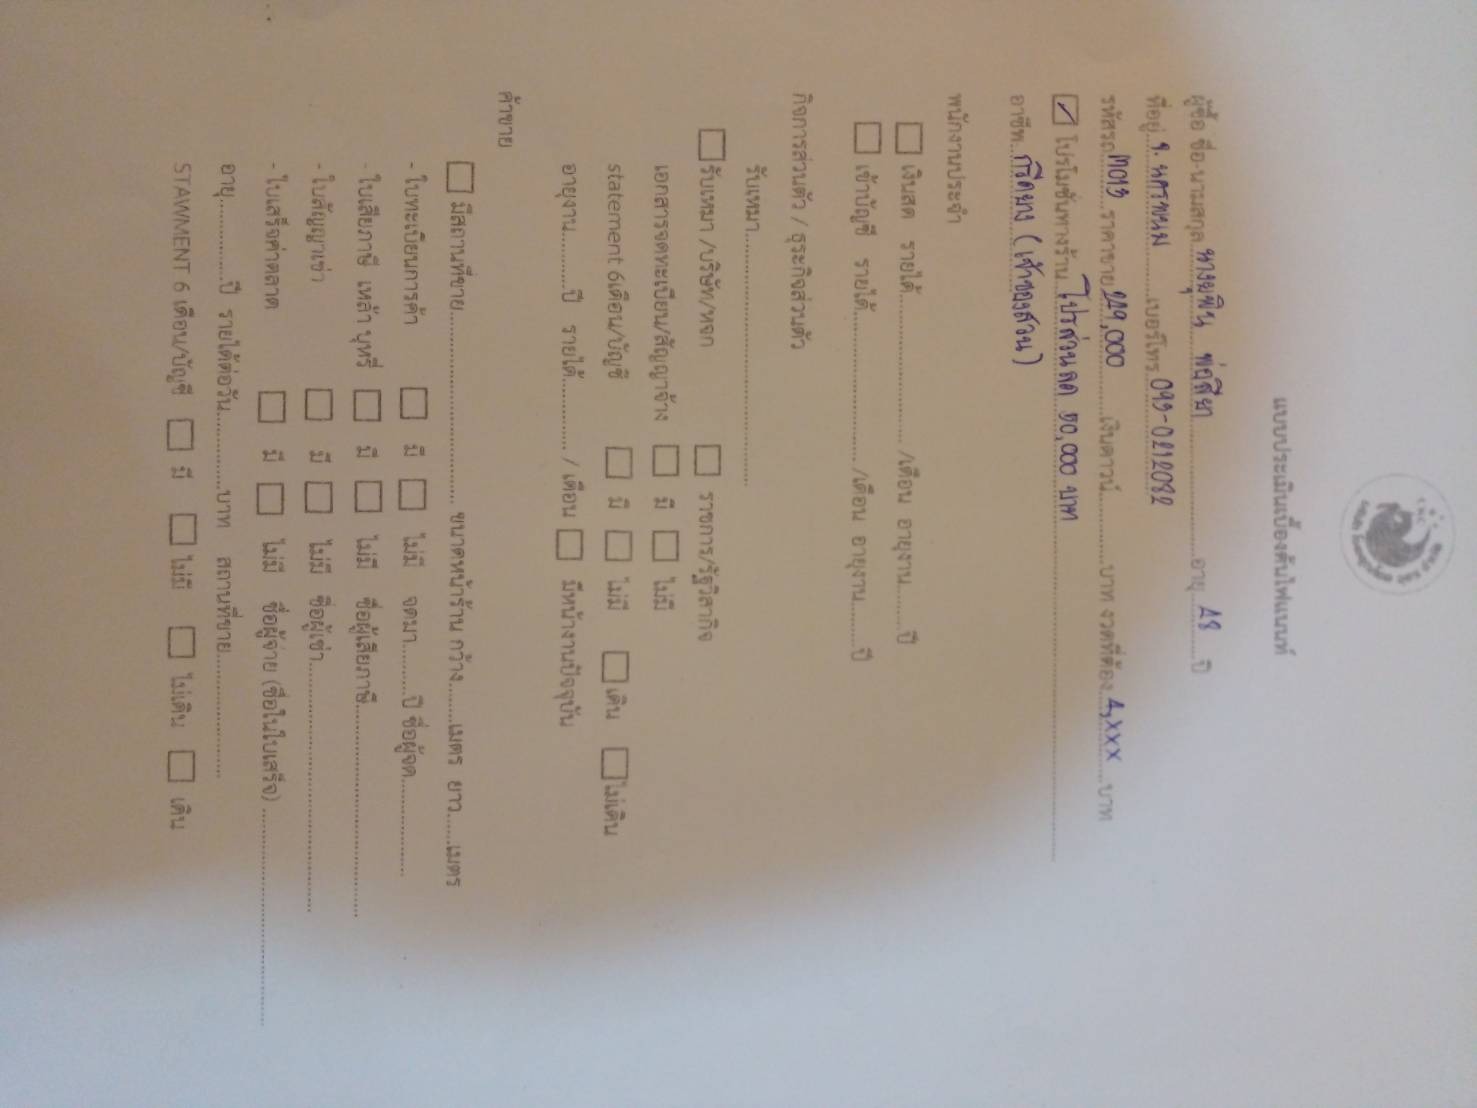 แบบประเมินเบื้องต้นไฟแนนท์
ผู้ซื้อ ชื่อ-นามสกุล นางยุพิน พ่อสียา อายุ 48 ปี
ที่อยู่ จ. นครพนม เบอร์โทร 093-0212082
รหัสรถ ราคาขาย 229,000 เงินดาวน์ บาท งวดที่ต้อง 4,xxx บาท
☑ โปรโมชั่นทางร้าน โปรส่วนลด 30,000 บาท
อาชีพ กรีดยาง (เจ้าของสวน)
พนักงานประจำ
☐ เงินสด รายได้ /เดือน อายุงาน ปี
☐ เข้าบัญชี รายได้ /เดือน อายุงาน ปี
กิจการส่วนตัว / ธุระกิจส่วนตัว
รับเหมา
☐ รับเหมา /บริษัท/หจก ☐ ราชการ/รัฐวิสากิจ
เอกสารจดทะเบียน/สัญญาจ้าง ☐ มี ☐ ไม่มี
statement 6เดือน/บัญชี ☐ มี ☐ ไม่มี ☐ เดิน ☐ ไม่เดิน
อายุงาน ปี รายได้ / เดือน ☐ มีหน้างานปัจจุบัน
ค้าขาย
☐ มีสถานที่ขาย ขนาดหน้าร้าน กว้าง เมตร ยาว เมตร
- ใบทะเบียนการค้า ☐ มี ☐ ไม่มี จดมา ปี ชื่อผู้จด
- ใบเสียภาษี เหล้า บุหรี่ ☐ มี ☐ ไม่มี ชื่อผู้เสียภาษี
- ใบสัญญาเช่า ☐ มี ☐ ไม่มี ชื่อผู้เช่า
- ใบเสร็จค่าตลาด ☐ มี ☐ ไม่มี ชื่อผู้จ่าย (ชื่อในใบเสร็จ)
อายุ ปี รายได้ต่อวัน บาท สถานที่ขาย
STAWMENT 6 เดือน/บัญชี ☐ มี ☐ ไม่มี ☐ ไม่เดิน ☐ เดิน